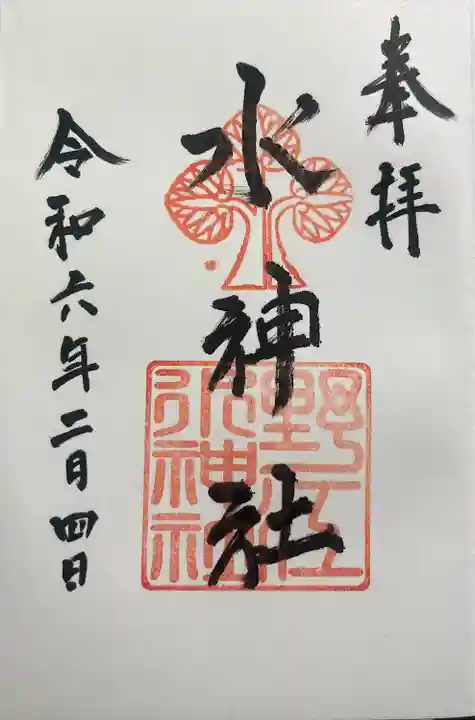 奉拝
水神社
野江
水神社
令和六年二月四日